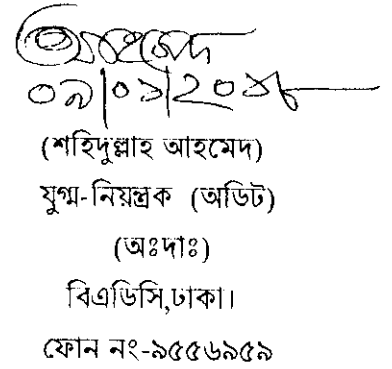 (শহিদুল্লাহ আহমেদ)
যুগ্ম-নিয়ন্ত্রক (অডিট)
(অঃদাঃ)
বিএডিসি,ঢাকা।
ফোন নং-৯৫৫৬৯৫৯